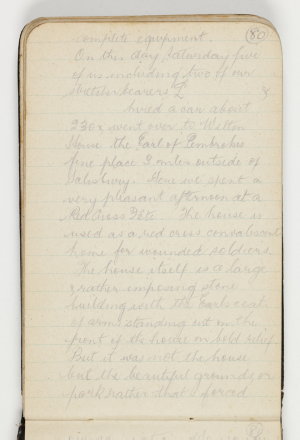 (80)
complete equipment.
On the day Saturday five
of us including two of our
stretcher bearers &
hired a car about
2.30 & went over to Wilton
House the Earl of Pembrokes
fine place 3 miles outside of
Salisbury. Here we spent a
very pleasant afternoon at a
Red Cross Fete. The house is
used as a red cross convalescent
home for wounded soldiers.
The house itself is a large
& rather imposing stone
building with the Earls coat
of arms standing out on the
front of the house in bold relief.
But it was not the house
but the beautiful grounds or
park rather that I forced